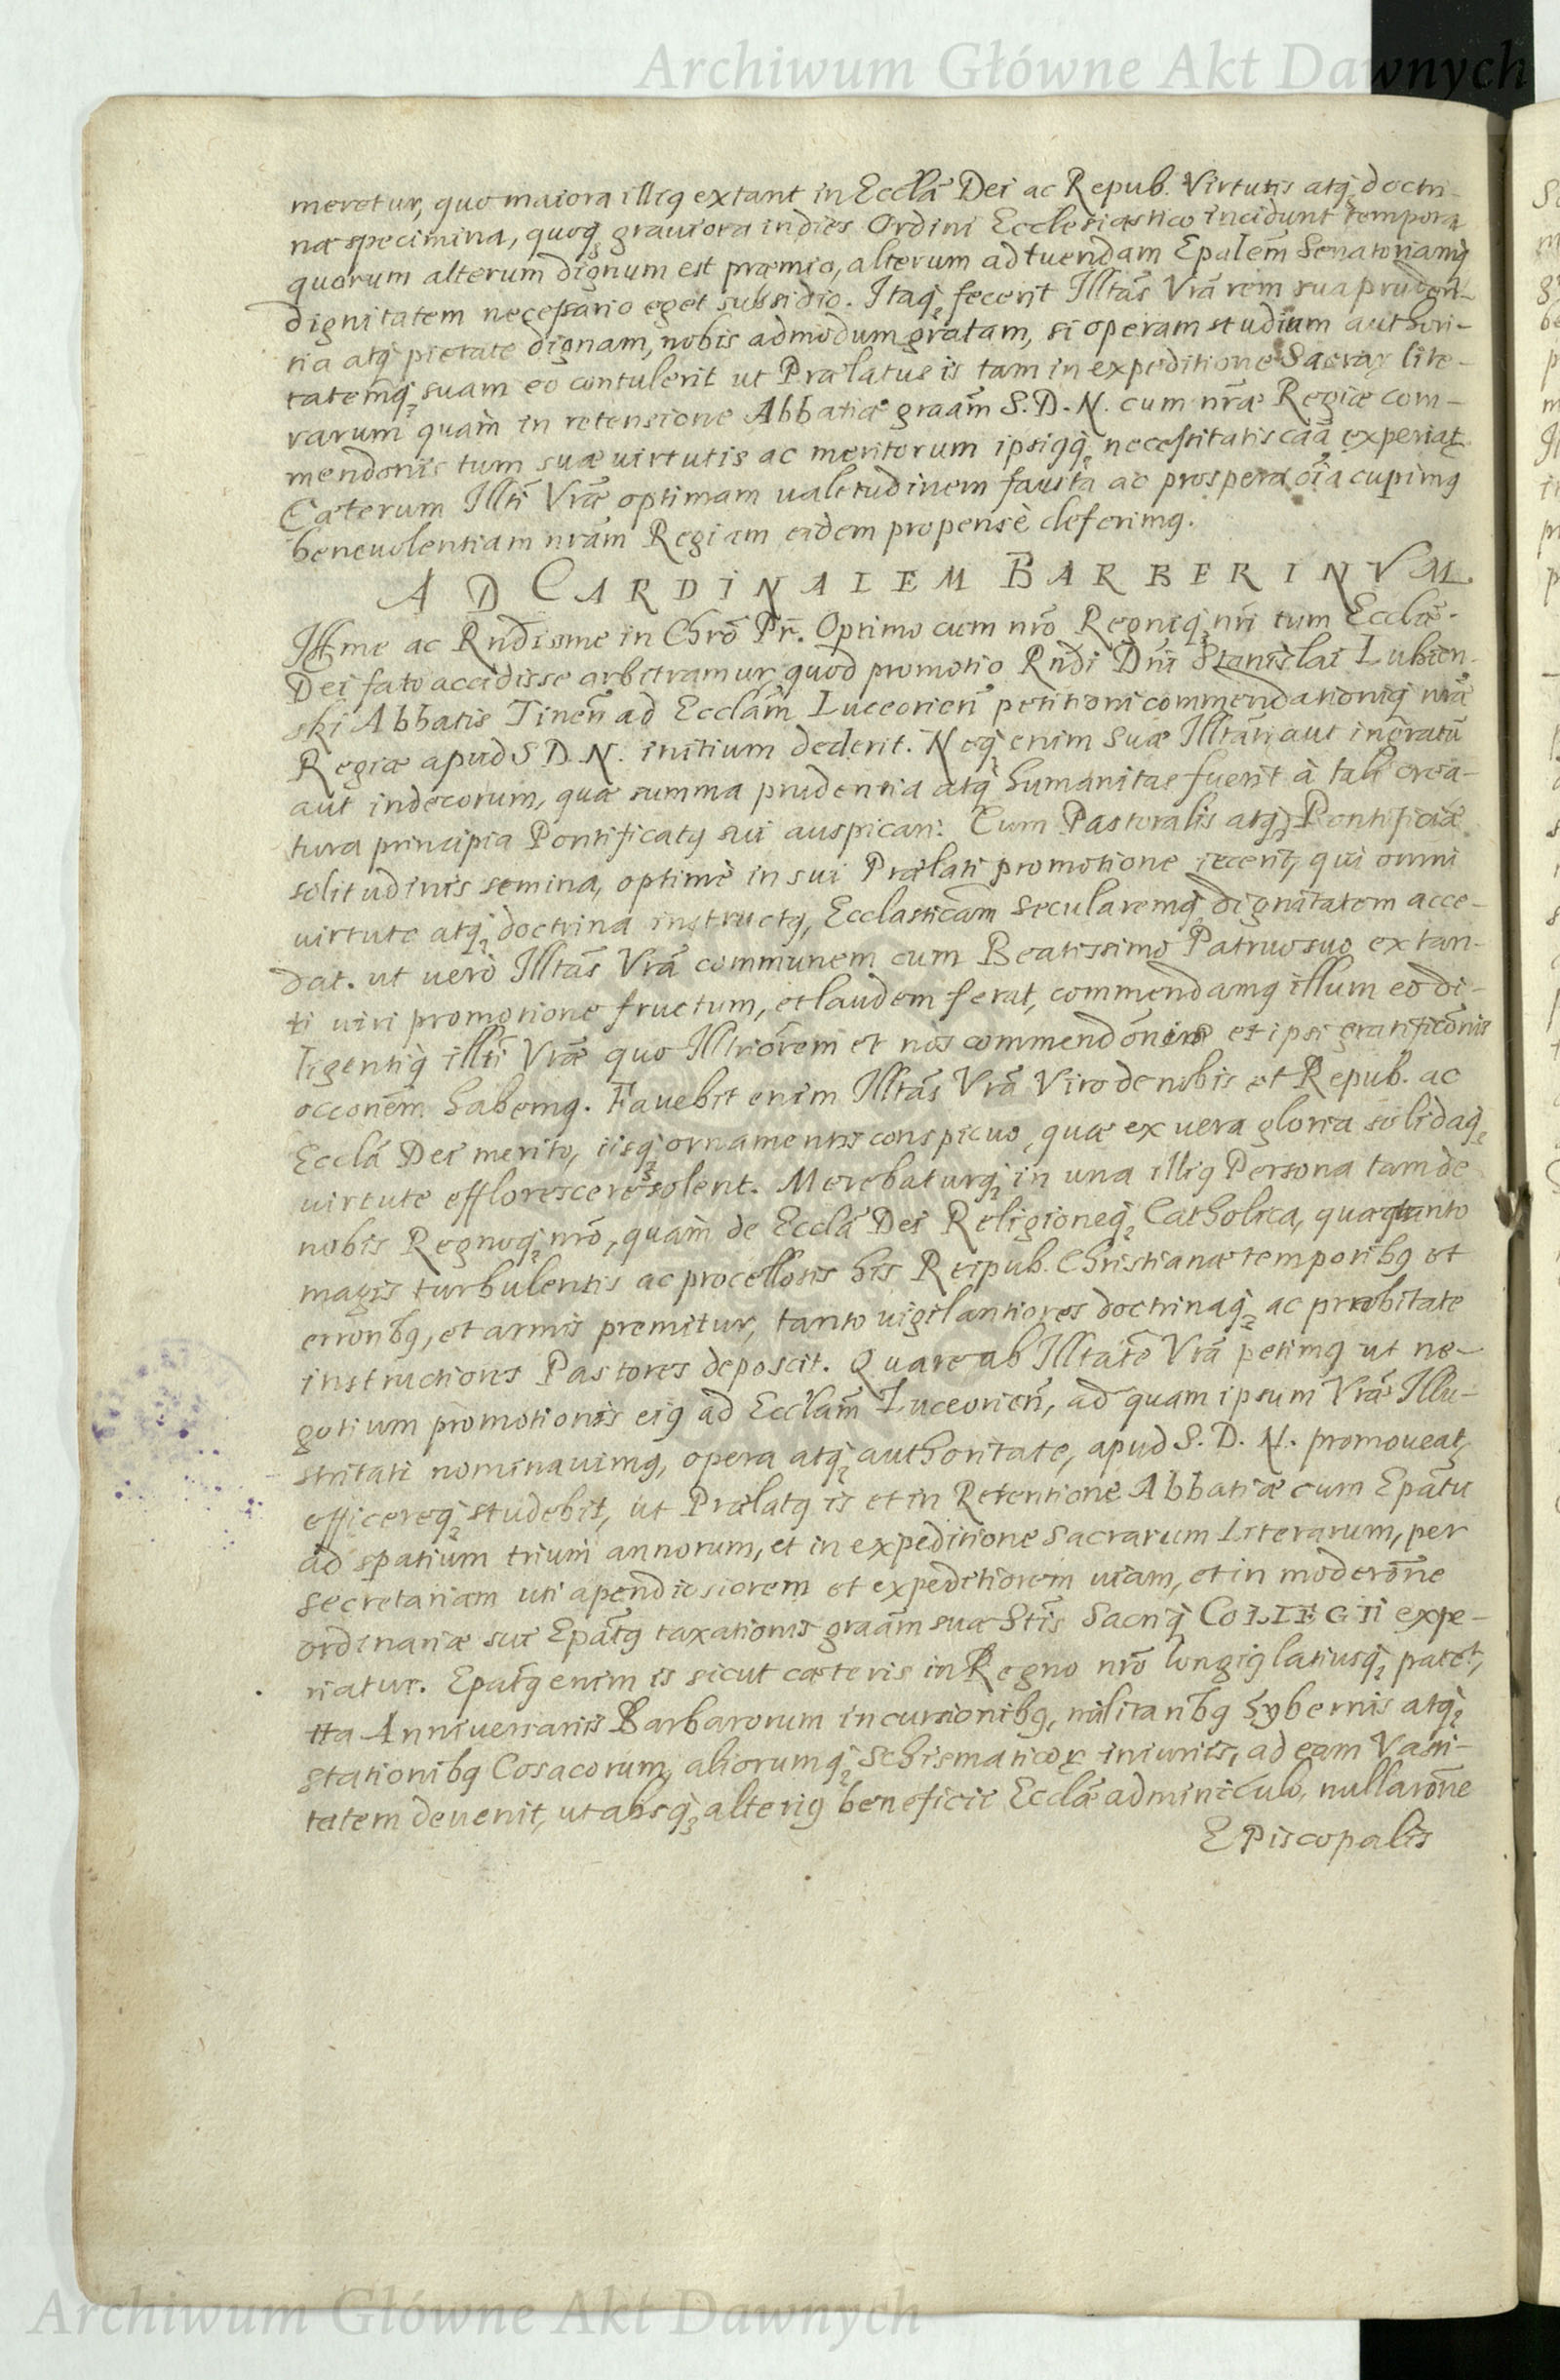 Archiwum Główne Akt Dawnych
meretur, quo maiora illiq extant in Ecclã Dei ac Repub. Virtutis atq doctri-
næ specimina, quoq grauiora indies Ordini Ecclesiastico incidunt tempora
quorum alterum dignum est præmio, alterum ad tuendam Epalem̃ Senatoriamq
dignitatem necessario eget subsidio. Itaq fecerit Illtãs Vrã rem sua pruden-
tia atq pietate dignam, nobis admodum gratam, si operam studium authori-
tatemq suam eo contulerit ut Prælatus is tam in expeditione Sacrar lite-
rarum quam in retensione Abbatiæ graãm S. D. N. cum nrãe Regiæ com-
mendonis tum suæ virtutis ac meritorum ipsiqq necessitatis caã experiat
Cæterum Illti Vræ optimam ualetudinem fausta ac prospera oĩa cupimq
beneuolentiam nrãm Regiam eidem propensè deferimq.
AD CARDINALEM BARBERINVM
Illme ac Rndissme in Chrõ Pr̃. Optimo cum nrõ Regniq nri tum Ecclæ
Dei fato accidisse arbitramur, quod promotio Rndi Dni Stanislai Lubien-
ski Abbatis Tineñ ad Ecclãm Luceorieñ petitioni commendationiq nrã
Regiæ apud S D. N. initium dederit. Neq enim Suæ Illtãti aut ingratũ
aut indecorum, quæ summa prudentia atq humanitas fuerit à tali crea-
tura principia Pontificatq sui auspicari. Cum Pastoralis atq Pontificiæ
solitudinis semina, optimè in sui Prælati promotione iecerit, qui omni
uirtute atq doctrina instructq, Ecclasticãm Secularemq dignitatem acce-
dat. ut uerò Illtãs Vrã communem cum Beatissimo Patruo suo extan-
ti uiri promotione fructum, et laudem ferat, commendamq illum eo di-
ligentiq illti Vræ quo Illriõrem et nos commendõnis et ipsi gratificõnis
occonẽm habemq. Favebit enim Illtãs Vrã Viro de nobis et Repub. ac
Ecclã Dei merito, iisq ornamentis conspicuo, quæ ex uera gloria solidaq
uirtute efflorescere solent. Merebaturq in una illiq Persona tam de
nobis Regnoq nrõ, quàm de Ecclã Dei Religioneq Catholica, quæ quanto
magis turbulentis ac procellosis his Reipub. Christianæ temporibq et
erroribq, et armis premitur, tanto uigilantiores doctrinaq ac probitate
instructiores Pastores deposcit. Quare ab Illtatẽ Vrã petimq ut ne-
gotium promotionis eiq ad Ecclãm Luceorieñ, ad quam ipsum Vræ Illu-
stritati nominauimq, opera atq authoritate, apud S. D. N. promoueat,
efficereq studebit, ut Prælatq is et in Retentione Abbatiæ cum Epãtu
ad spatium trium annorum, et in expeditione Sacrarum Literarum, per
Secretariam uti apendiosiorem et expeditiorem uiam, et in moderõne
ordinariæ sui Epãtq taxationis graãm suæ Stis Sacriq COLLEGII expe-
riatur. Epatq enim is sicut cæteris in Regno nrõ longiq latiusq patet,
tta Anniuersariis Barbarorum incursionibq, militaribq hybernis atq
stationibq Cosacorum, aliorumq Schismaticor iniuriis, ad eam Vasti-
tatem deuenit, ut absq alteriq beneficii Ecclæ adminiculo, nulla rõne
Episcopalis
Archiwum Główne Akt Dawnych